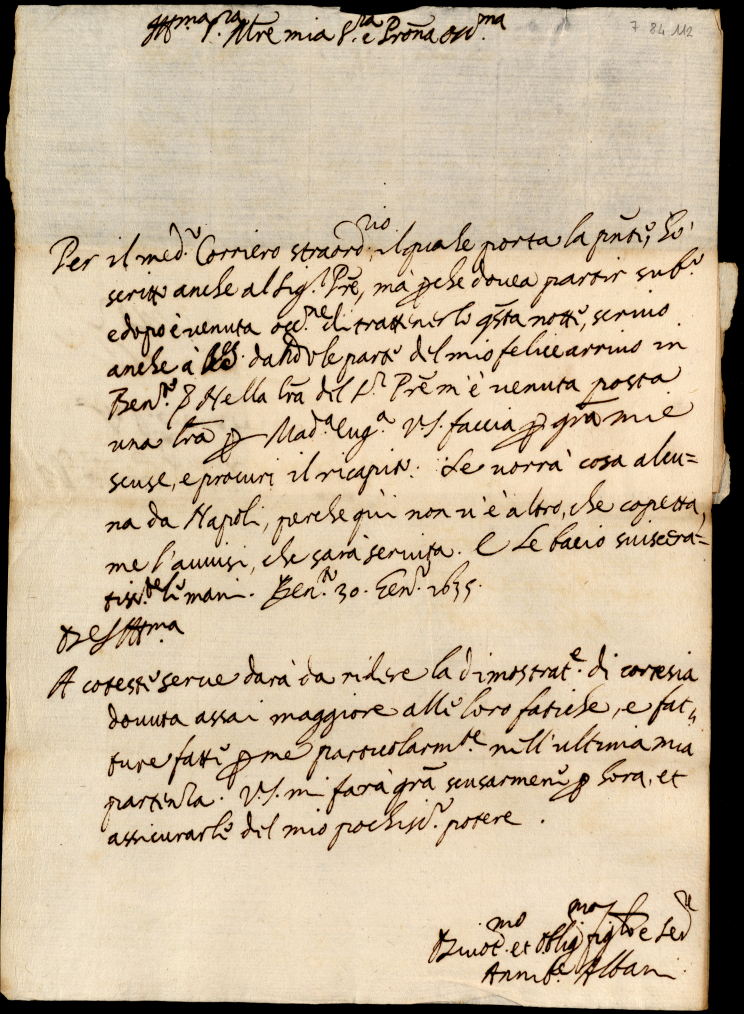 Ill.ma S.ra M̃re mia S.ra e Proña oss.ma
7 84 112
Per il med.º Corriero straord.rio, il quale porta la pñte, hò
scritto anche al Sig.r Prẽ, mà pche douea partir sub.º
e dopo è venuta occ.ne di trattenerlo q̃sta notte, scriuo
anche à dandole parte del mio felice arriuo in
Ben.to Nella lr̃a del S.r Prẽ m'è venuta posta
una lr̃a p Mad.a Eug.a V.S. faccia p gr̃a mie
scuse, e procuri il ricapito. Se uorrà cosa alcu=
na da Napoli, perche quì non u'è altro, che copetta,
me l'auuisi, che sarà seruita. E le bacio suiscera=
tiss.te le mani. Ben.to 30. Gen.ro 1635.
Di V.S. Ill.ma
A coteste serue darà da ridere la dimostrat.e di cortesia
douuta assai maggiore alle loro fatiche, e fat=
ture fatte p me particolarm.te nell'ultima mia
partenza. V.S. mi farà gr̃a scusarmene p hora, et
assicurarle del mio pochiss.º potere.
Diuot.mo et oblig.mo figlio e Ser.re
Annib.e Albani